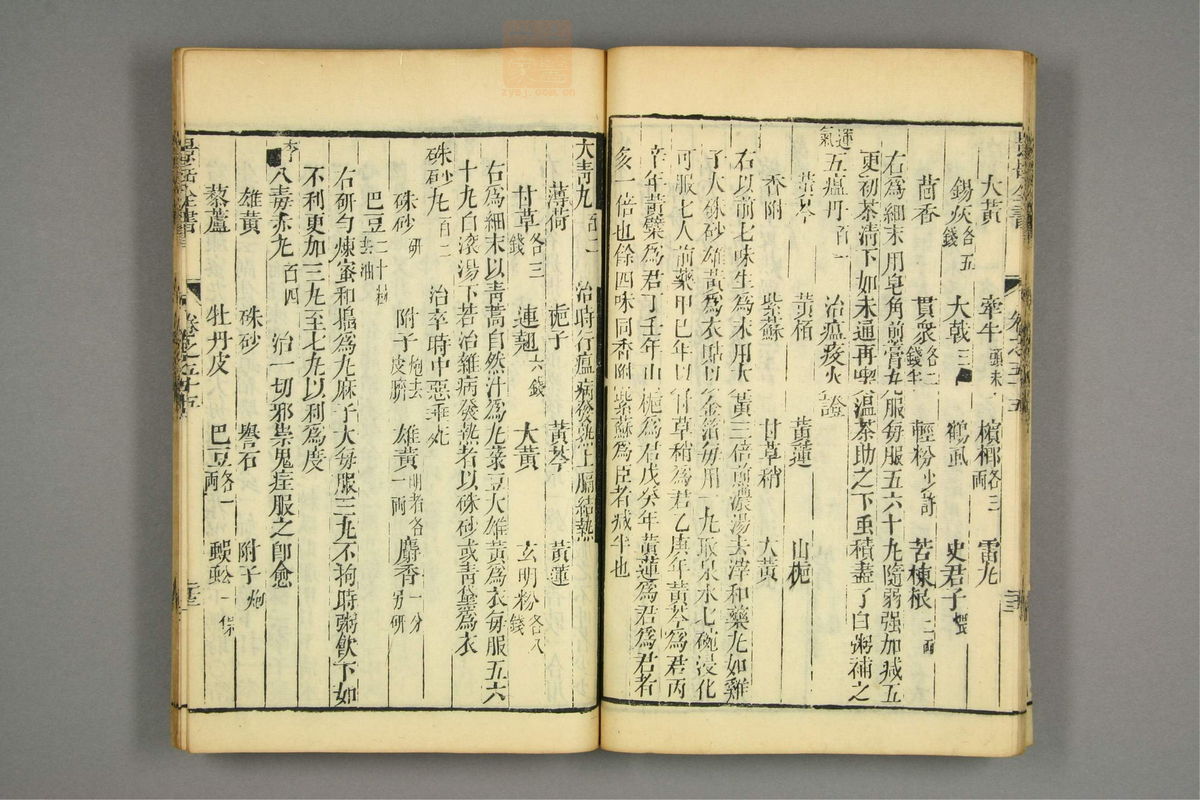 景岳全書 卷之五十五
大黃 牽牛頭末一 檳榔各三兩 雷丸
錫灰各五錢 大戟三 鶴虱 史君子煨
茴香 貫衆各二錢半 輕粉少許 苦楝根二兩
右爲細末用皂角煎膏丸服每服五六十九隨弱强加減五
更初茶淸下如未通再喫溫茶助之下虫積盡了白粥補之
運氣五瘟丹百一 治瘟疫火證
黃芩 黃栢 黃連 山梔
香附 紫蘇 甘草稍 大黃
右以前七味生爲末用大黃三倍煎濃湯去滓和藥丸如雞
子大硃砂雄黃爲衣貼以金箔每用一丸取泉水七碗浸化
可服七人前藥甲巳年以甘草稍爲君乙庚年黃芩爲君丙
辛年黃檗爲君丁壬年山梔爲君戊癸年黃連爲君爲君者
多一倍也餘四味同香附紫蘇爲臣者減半也
大靑丸百二 治時行瘟病發熱上膈結熱
薄荷 梔子 黃芩 黃連
甘草各三錢 連翹六錢 大黃 玄明粉各八錢
右爲細末以靑蒿自然汁爲丸菉豆大雄黃爲衣每服五六
十九白滚湯下若治雜病發熱者以硃砂或靑黛爲衣
硃砂丸百二 治卒時中惡垂死
硃砂研 附子炮去皮臍 雄黃明者各一兩 麝香一分另研
巴豆二十粒去油
右研勻煉蜜和搗爲丸麻子大每服三丸不拘時粥飲下如
不利更加三丸至七九以利爲度
李八毒赤丸百四 治一切邪祟鬼疰服之卽愈
雄黃 硃砂 礜石 附子炮
藜蘆 牡丹皮 巴豆各一兩 蜈蚣一條
景岳全書 卷之五十五